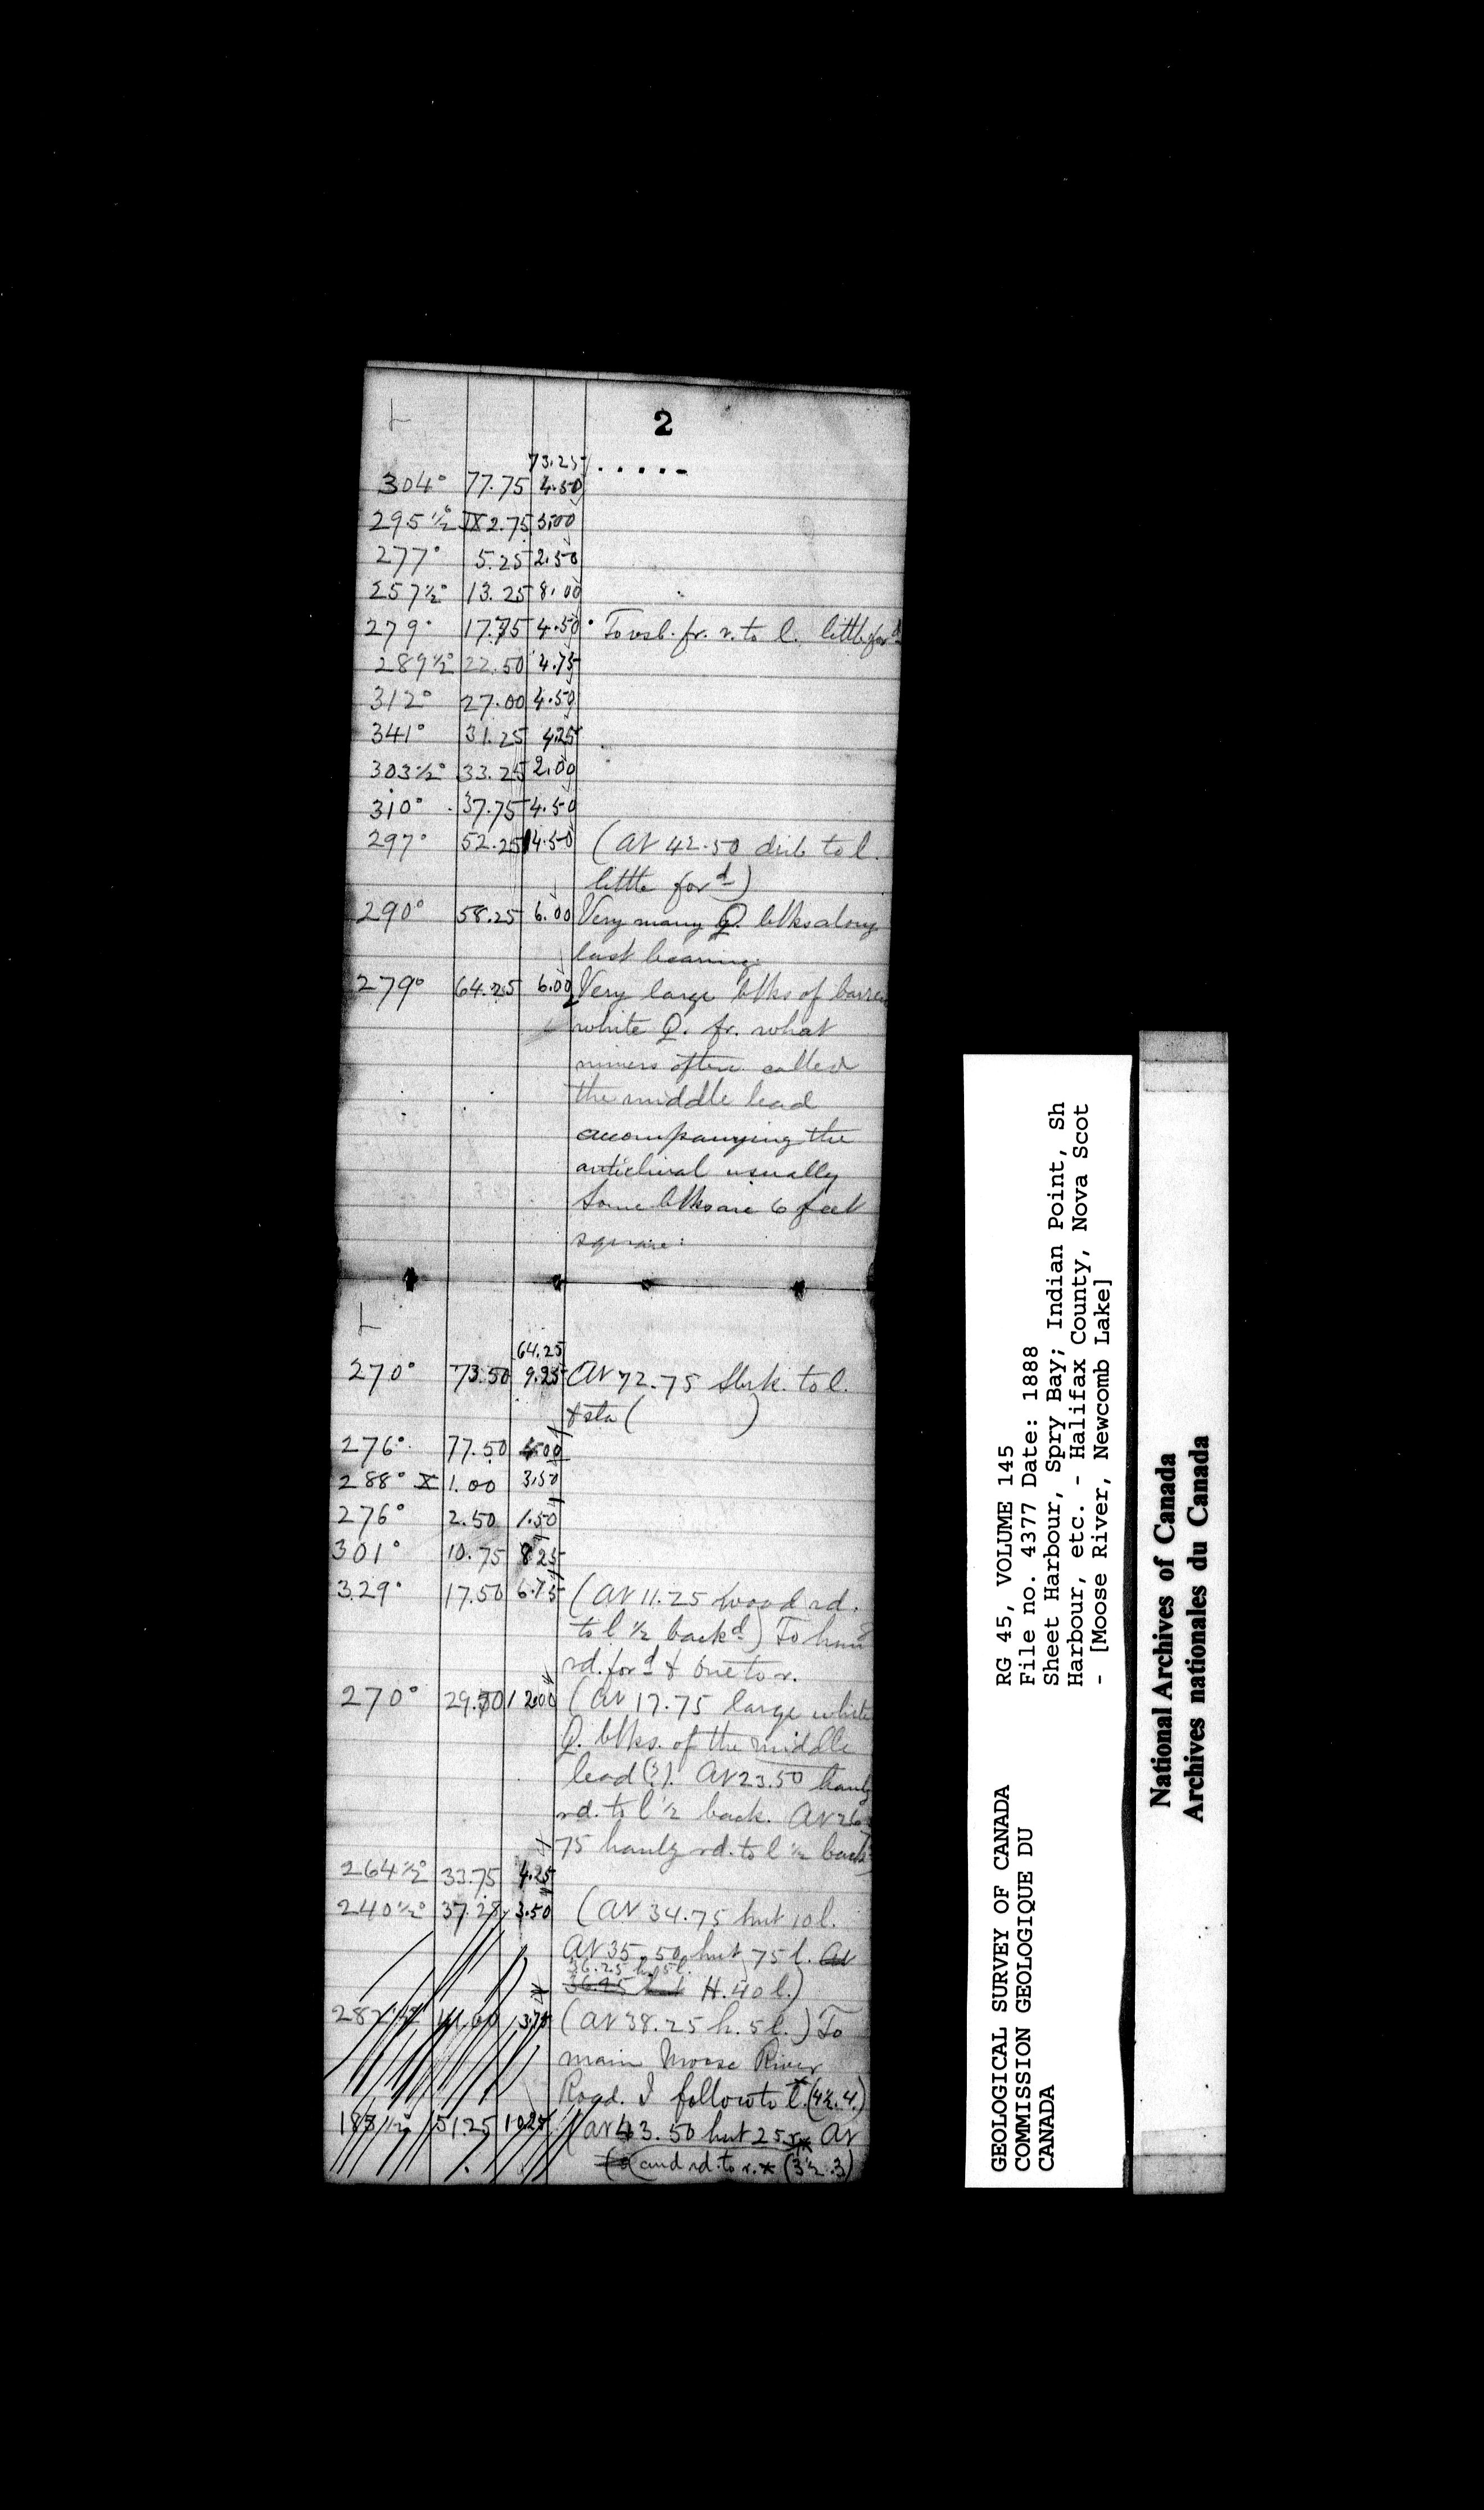 L
2
73.25 . . . . -
304° 77.75 4.50
295½° IX 2.75 3.00
277° 5.25 2.50
257½° 13.25 8.00
279° 17.75 4.50 fr. r. to l. little for d
289½° 22.50 4.75
312° 27.00 4.50
341° 31.25 4.25
303½° 33.25 2.00
310° 37.75 4.50
297° 52.25 14.50 (At 42.50 to l.
little for d)
290° 58.25 6.00 Very many Q. blks along
last bearing.
279° 64.25 6.00 Very large blks of barren
white Q. fr. what
miners often called
the middle lead
accompanying the
anticlinal usually
Some blks are 6 feet
square.
L
64.25
270° 73.50 9.25 At 72.75 to l.
& sta ( )
276° 77.50 4.00
288° X 1.00 3.50
276° 2.50 1.50
301° 10.75 8.25
329° 17.50 6.75 (At 11.25 wood rd.
to l ½ back d) To
rd. for d & one to r.
270° 29.50 12.00 (At 17.75 large white
Q. blks. of the middle
lead (?). At 23.50
rd. to l ½ back. At 26.
75 rd. to l ½ back
264½° 33.75 4.25
240½° 37.25 3.50 (At 34.75 hut 10 l.
At 35.50 hut 75 l. At
36.25 h. 5 l.
H. 40 l.)
282½° 41.00 3.75 (At 38.25 h. 5 l.) To
main Moose River
Road. I follow to l. (4½. 4.)
51.25 10.25 (At 43.50 hut 25 r. At
and rd. to r. * (3½.3)
GEOLOGICAL SURVEY OF CANADA
COMMISSION GEOLOGIQUE DU
CANADA
RG 45, VOLUME 145
File no. 4377 Date: 1888
Sheet Harbour, Spry Bay; Indian Point, Sh
Harbour, etc. - Halifax County, Nova Scot
- [Moose River, Newcomb Lake]
National Archives of Canada
Archives nationales du Canada